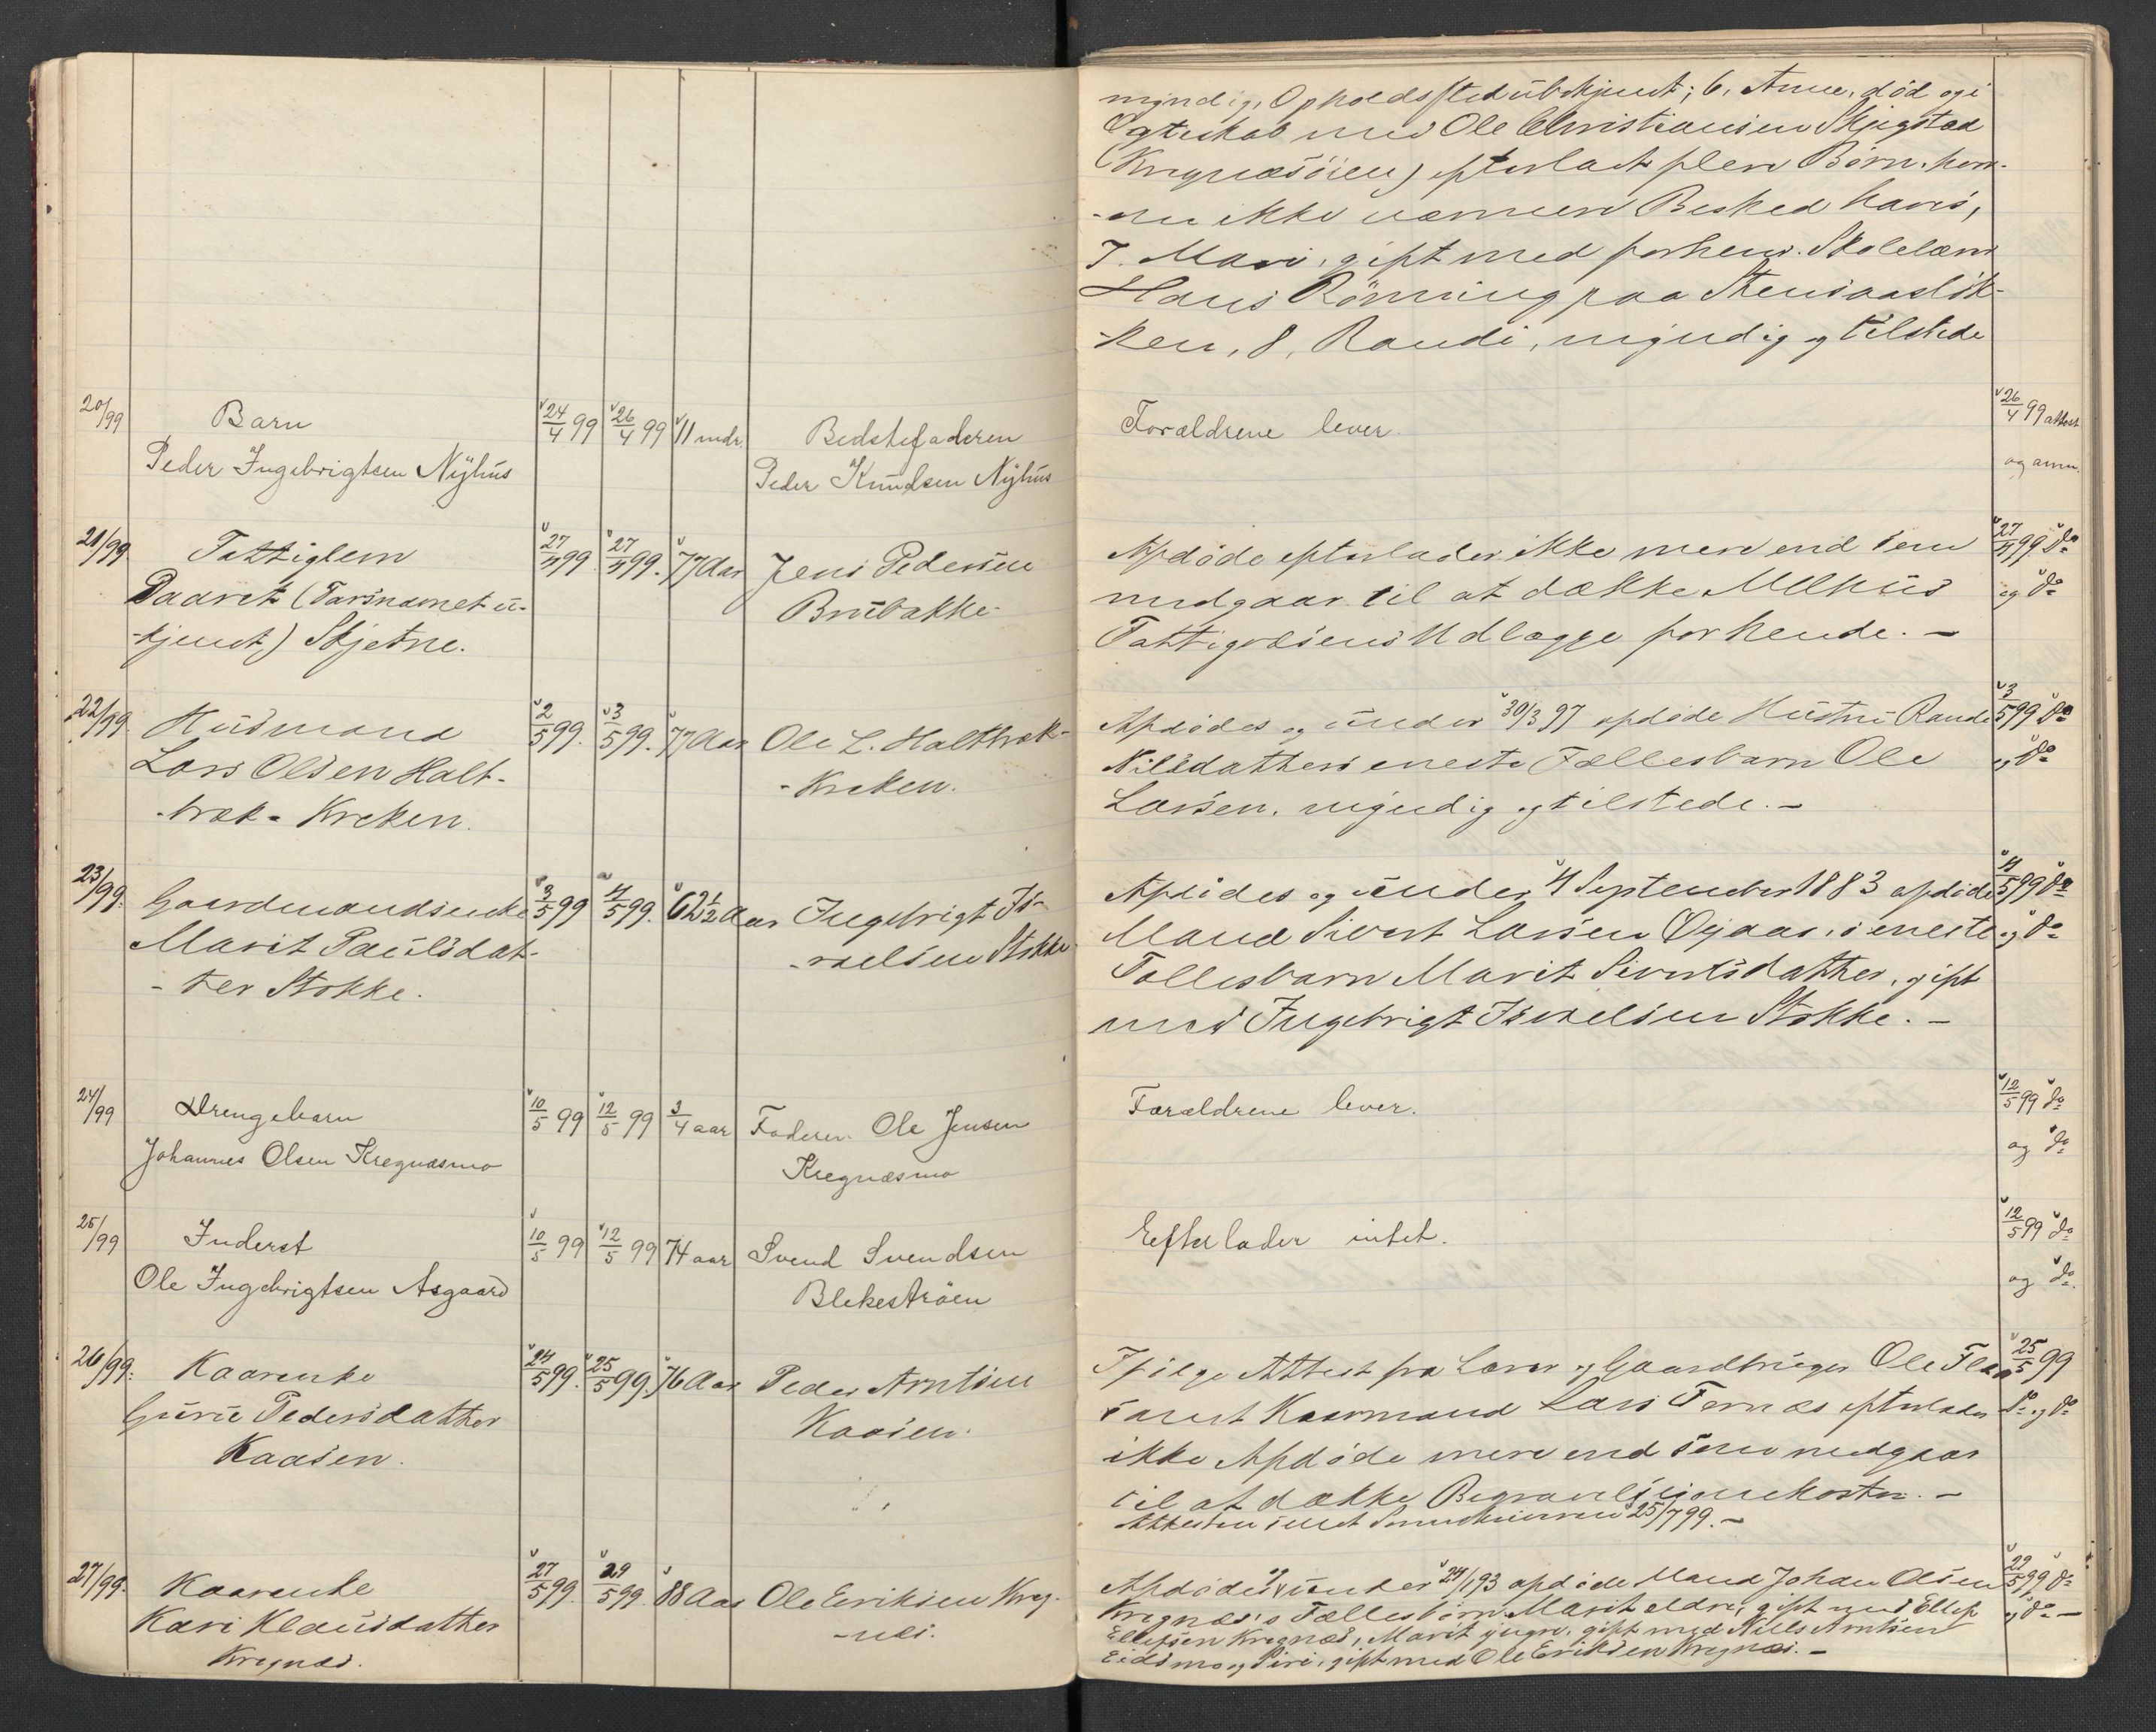 myndig, Opholdssted übekjendt; 6, Anne, død og i
Ægteskab med Ole Christiansen Skjegstad
(Kregnæsöien) efterladt flere Børn, hvor-
-om ikke nærmere Besked haves,
7. Mari, gift med forhenv. Skolelærer
Hans Rönning paa Stensaaslök-
ken, 8, Randi, myndig og tilstede
20/99 Barn 24/4 99 26/4 99 11 mdr. Bedstefaderen Forældrene lever. 26/4 99 attest
Peder Ingebrigtsen Nÿhüs Peder Knüdsen Nÿhüs og anm.
21/99. Fattiglem 27/4 99. 27/4 99. 77 Aar Jens Pedersen Afdöde efterlader ikke mere end som 27/4 99 do
Paaret (Farsnavnet ü- Brübakke medgaar til at dække Melhüs og do
-kjendt) Skjetne. Fattigvæsens Udlægge for hende. —
22/99. Hüsmand 2/5 99. 3/5 99. 77 Aar Ole L. Halttræk- Afdödes og ünder 30/3 97 afdöde Hüstrü Randi 3/5 99 do
Lars Olsen Halt- -Kreken. Nilsdatters eneste Fællesbarn Ole og do
-træk-Kreken. Larsen, myndig og tilstede. —
23/99. Gaardmandsenke 3/5 99 4/5 99. 62½ Aar Ingebrigt Is- Afdödes og ünder 4 September 1883 afdöde 4/5 99 do
Marit Paülsdat- -raelsen Stokke Mand Sivert Larsen Øyaas's eneste og do
-ter Stokke. Fællesbarn Marit Sivertsdatter, gift
med Ingebrigt Israelsen Stokke. —
24/99 Drengebarn 10/5 99 12/5 99 3/4 aar Faderen Ole Jensen Forældrene lever. 12/5 99 do
Johannes Olsen Kregnæsmo Kregnæsmo og do
25/99 Inderst 10/5 99 12/5 99 74 aar Svend Svendsen Efterlader intet. 12/5 99 do
Ole Ingebrigtsen Asgaard Blekeströen og do.
26/99. Kaarenke 24/5 99. 25/5 99. 76 Aar Peder Arntsen Ifölge Attest fra Lærer og Gaardbrüger Ole Flaa 25/5 99
Gürü Pedersdatter Kaasen. samt Kaarmand Lars Ternæs efterlader do og do
Kaasen. ikke Afdöde mere end som medgaar
til at dække Begravelsesomkoster. —
Attesten sendt Sorenskriveren 25/7 99. —
27/99. Kaarenke 27/5 99. 29/5 99. 88 Aar Ole Eriksen Kreg- Afdödes og ünder 24/1 93 afdöde Mand Johan Olsen 29/5 99 do
Kari Klaüsdatter -næs. Kregnæs's Fællesbörn Marit ældre, gift med Ellef og do —
Kregnæs. Ellefsen Kregnæs, Marit yngre, gift med Nills Arntsen
Eidsmo og Siri, gift med Ole Eriksen Kregnæs. —